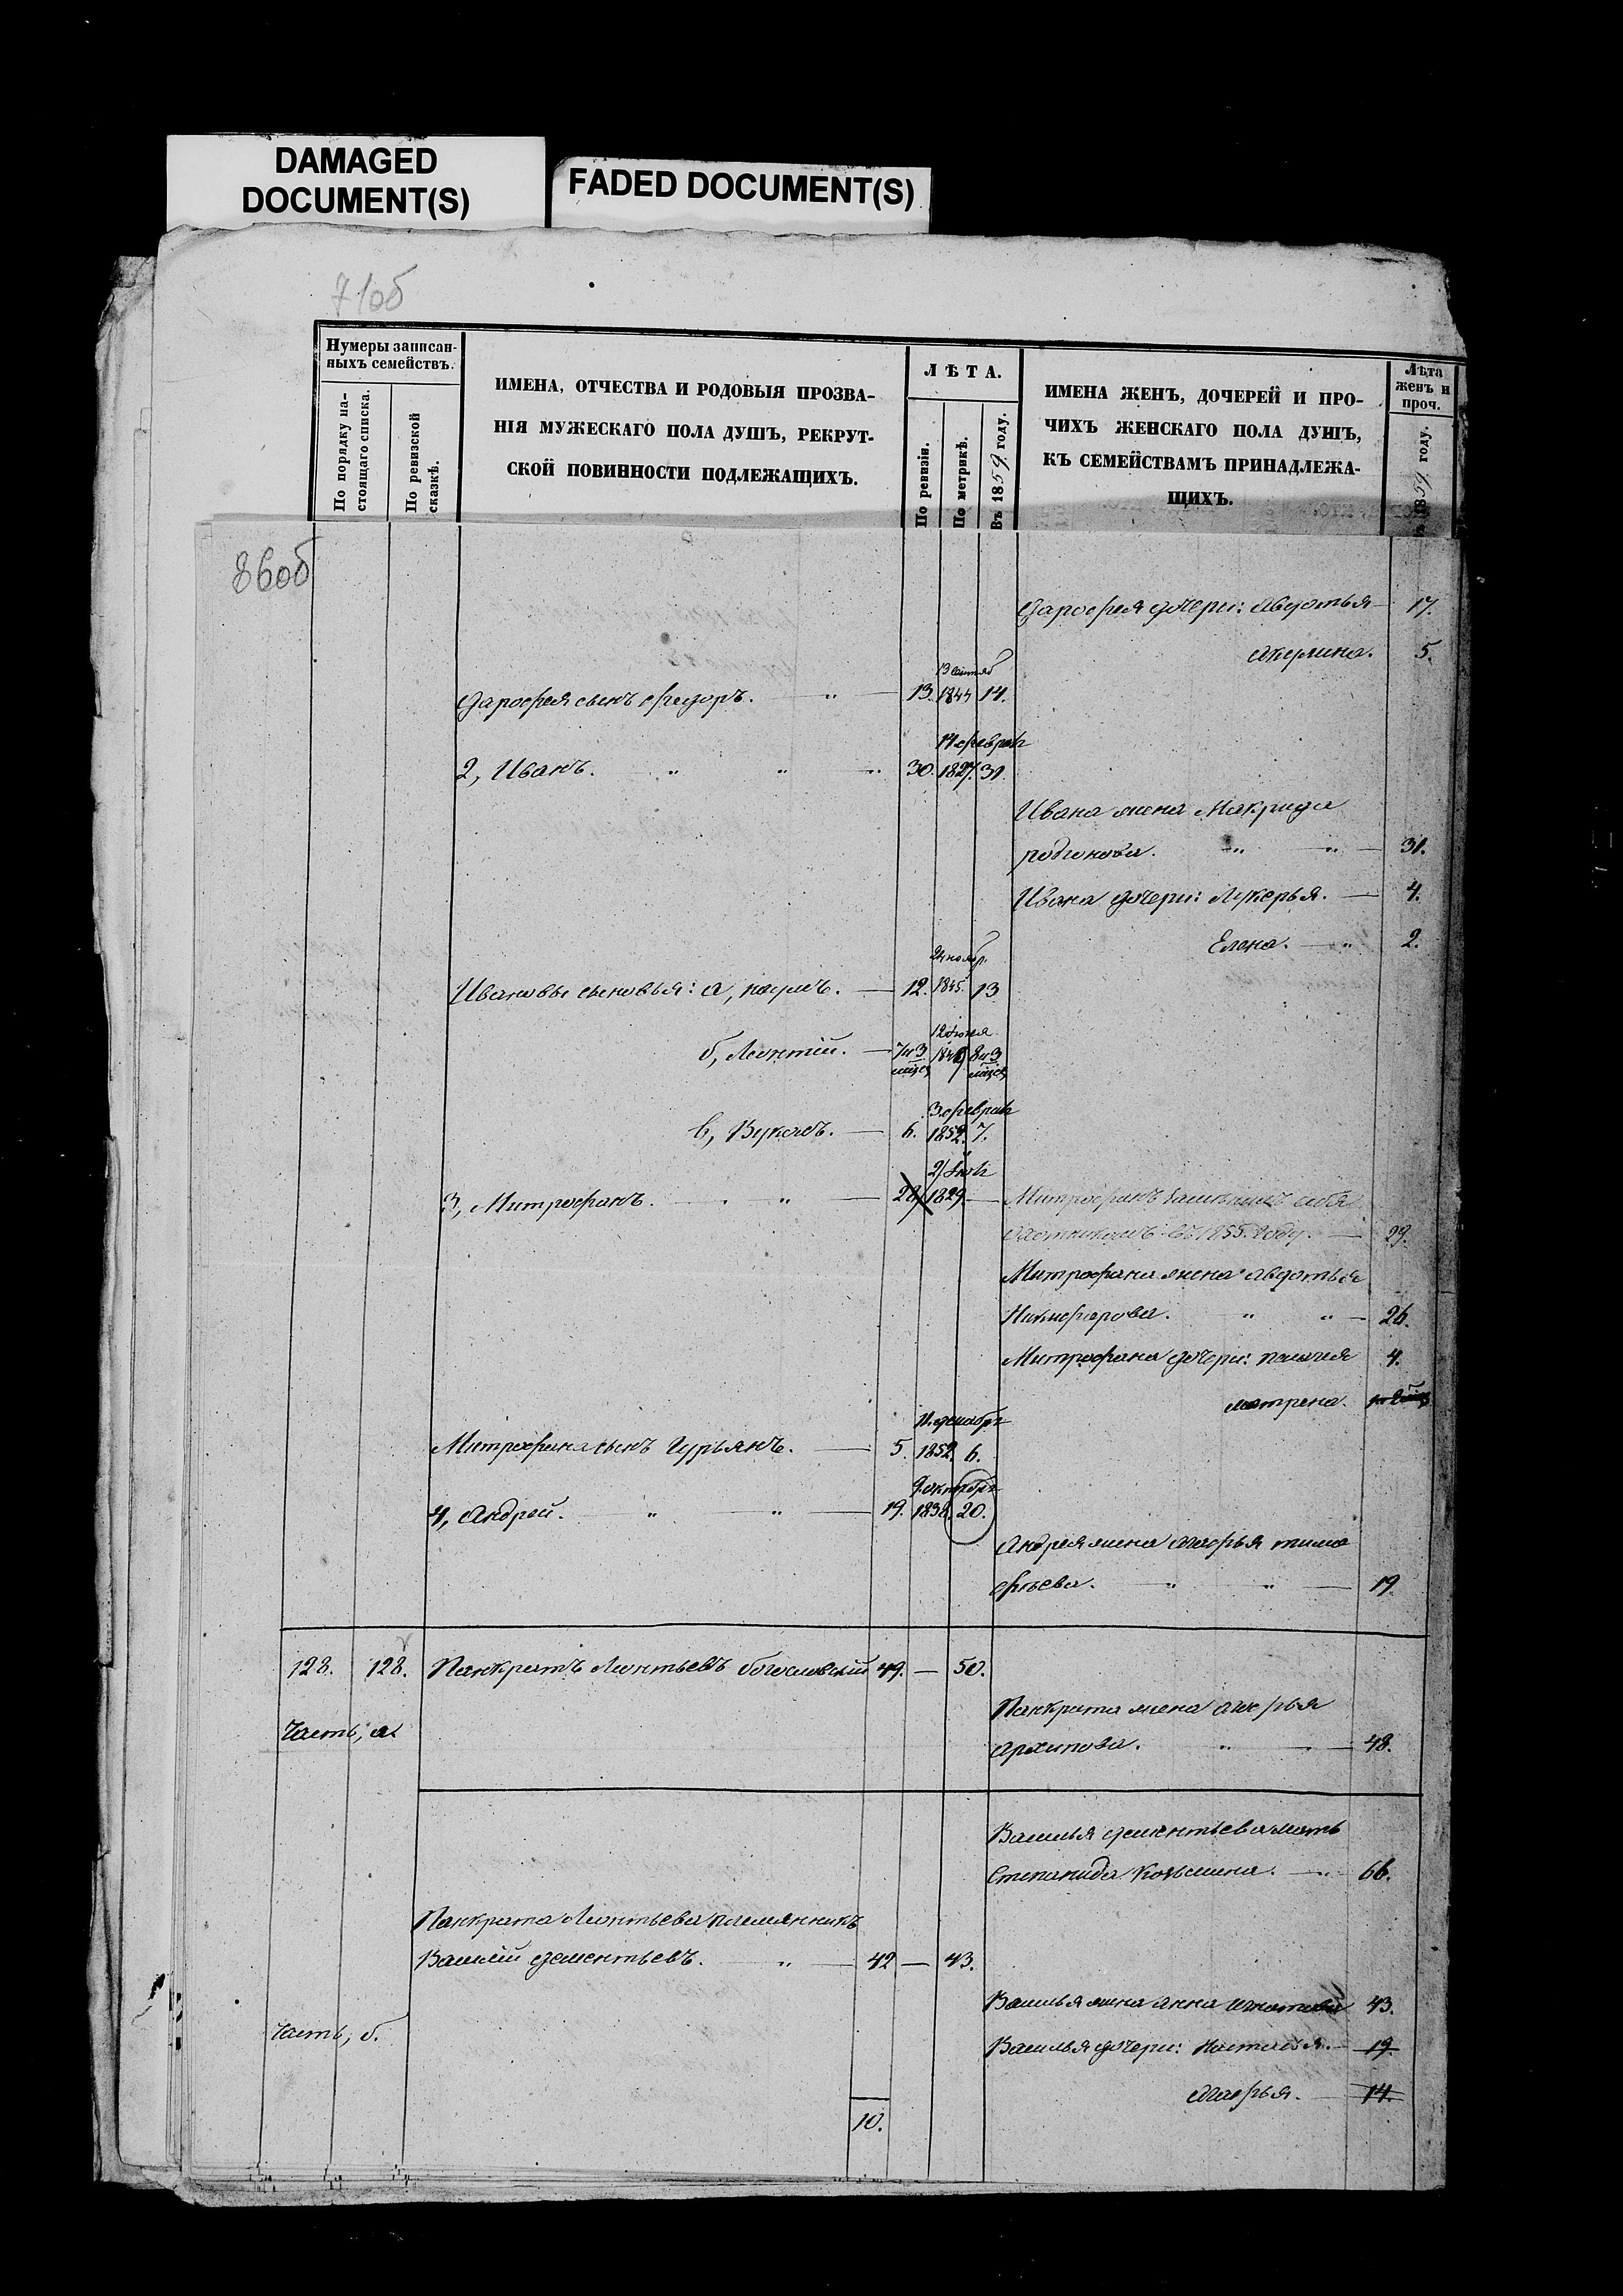 DAMAGED
DOCUMENT(S)
FADED DOCUMENT(S)
71об
Нумеры записан-
ныхъ семействъ.
По порядку на-
стоящаго списка.
По ревизской
сказкѣ.
ИМЕНА, ОТЧЕСТВА И РОДОВЫЯ ПРОЗВА-
НІЯ МУЖЕСКАГО ПОЛА ДУШЪ, РЕКРУТ-
СКОЙ ПОВИННОСТИ ПОДЛЕЖАЩИХЪ.
ЛѢТА.
По ревизіи.
По метрикѣ.
Въ 1859 году.
ИМЕНА ЖЕНЪ, ДОЧЕРЕЙ И ПРО-
ЧИХЪ ЖЕНСКАГО ПОЛА ДУШЪ,
КЪ СЕМЕЙСТВАМЪ ПРИНАДЛЕЖА-
ЩИХЪ.
Лѣта
женъ и
проч.
1859 году.
86об
Дарофея дочери: Авдотья 17.
Акулина. 5.
13 сентяб
Дарофея сынъ Федоръ. „ 13. 1844 14.
14 феврал
2, Иванъ. „ „ „ 30. 1827. 31.
Ивана жена Макрида
родионова. „ „ 31.
Ивана дочери: Лукерья. 4.
Елена. „ 2.
24 ноябр.
Ивановы сыновья: а, наумъ. 12. 1845. 13
12 Июня
б, Леонтій. 7 и 3 8 и 3
мѣсец мѣсец
3 феврал
в, Вуколъ. 6. 1852. 7.
3, Митрофанъ. „ „ 28 1829
Митрофанъ себя
въ 1855 году. 29.
Митрофана жена Авдотья
Никифорова. „ „ 26.
Митрофана дочери: пелагея 4.
матрена.
11 декабр
Митрофана сынъ Гурьянъ. 5. 1852 6.
9 октября
4, Андрей. „ „ 19. 1838. 20.
Андрея жена Марья тимо
фѣева. „ „ 19.
128. 128. Панкратъ Леонтьевъ богословскій 49. — 50.
Часть, а.
Панкрата жена Марья
Архипова. „ 48.
Василья дементьева мать
Степанида Козьмина. „ 66.
Панкрата Леонтьева племянникъ
Василій дементьевъ. „ 42 — 43.
Василья жена анна игнатова 43.
Часть, б.
Василья дочери: Настасья. 19.
Марья. 14.
10.